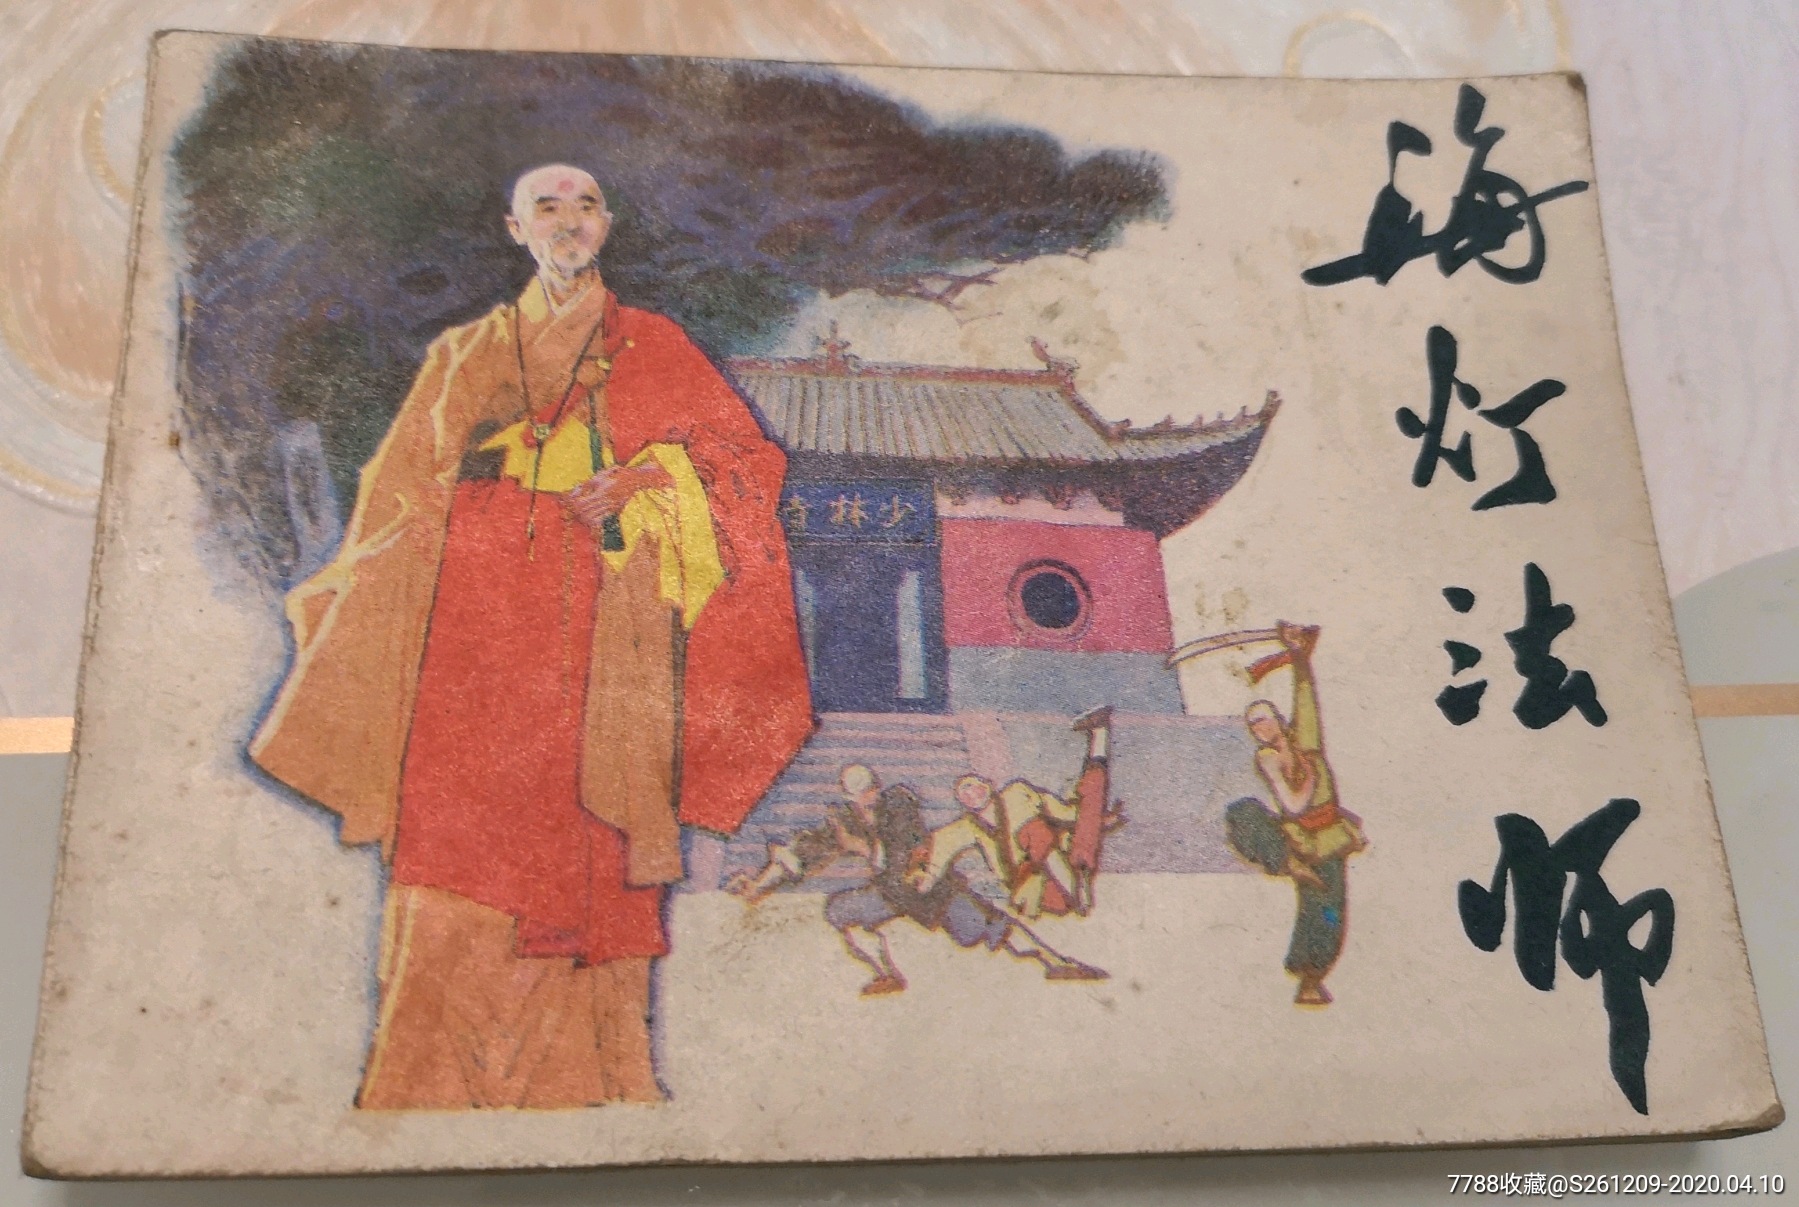 海灯法师
少林寺
7788收藏@S261209-2020.04.10